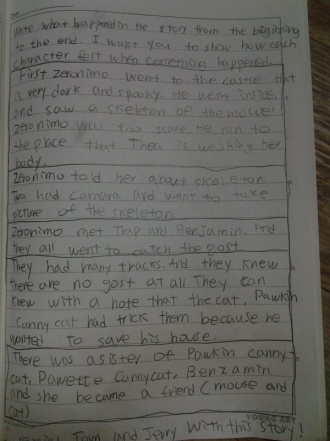 Write what happened in the story from the beginning
to the end. I want you to show how each
character felt when something happened.
First Zeronimo went to the castle that
is very dark and spooky. He went inside,
and saw a skeleton of the mouse!
Zeronimo was too scare He ran to
the place that Thea is washing her
body.
Zeronimo told her about skeleton.
Tea had camara and went to take
picture of the skeleton
Zeronimo met Trap and Benjamin. And
they all went to catch the gost
They had many tracks. And they knew
there are no gost at all They can
knew with a note that the cat, Pawkin
Canny cat had trick them because he
wanted to save his house.
There was a sister of Pawkin canny-
cat, Pawette Cannycat. Benzamin
and she became a friend (mouse and
cat)
YOUNG ART
Tom and Jerry With this Story!